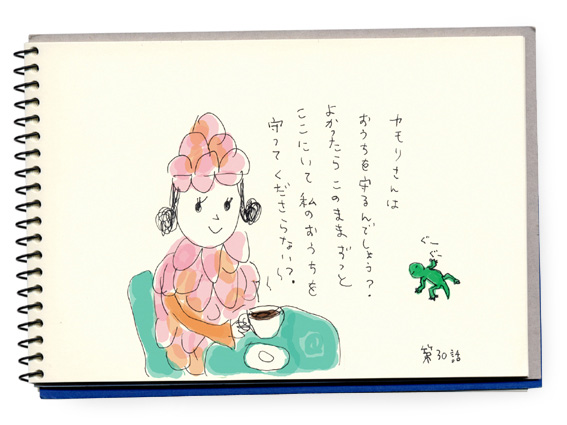 カモリさんは
おうちを守るんでしょう?
よかったら このまま ずっと
ここにいて 私のおうちを
守って くださらない?
ぐー
ぐー
第30話